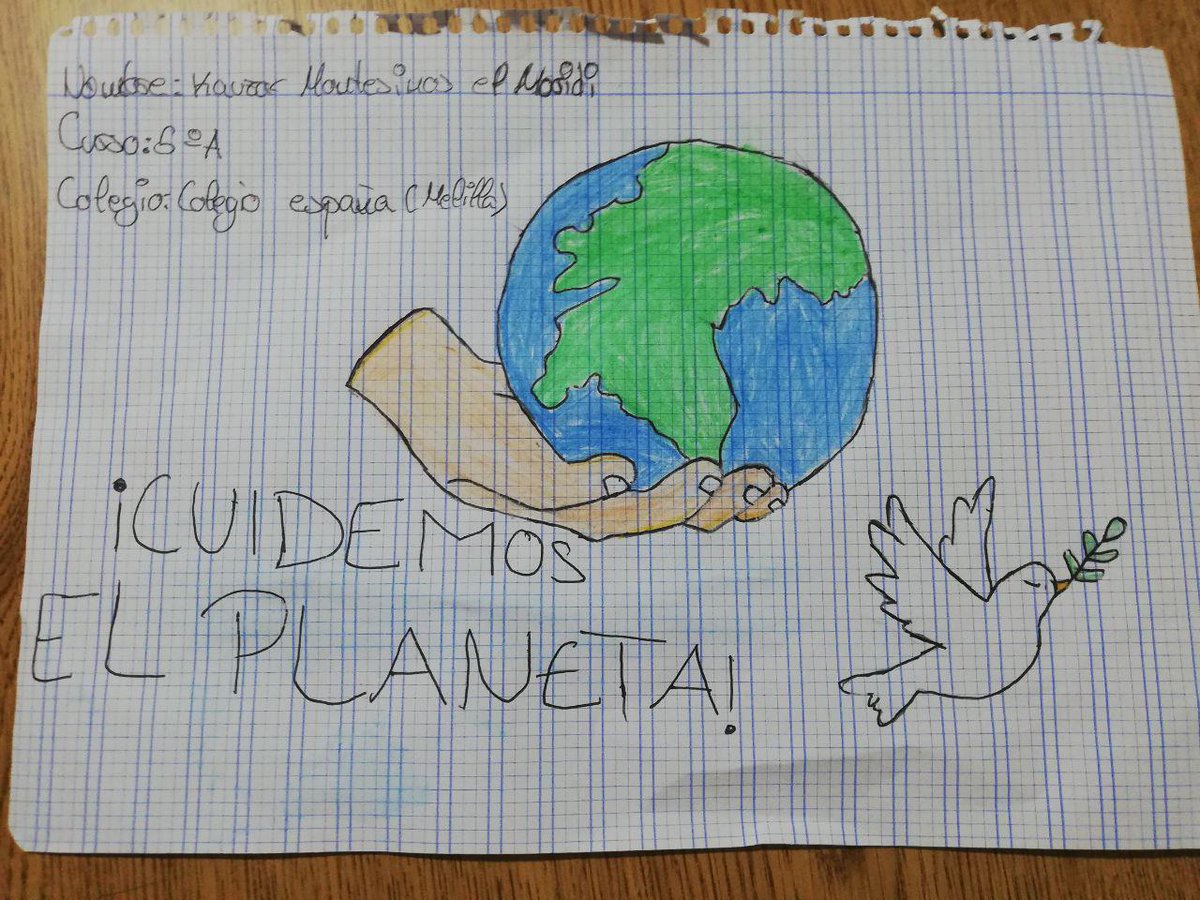 Nombre: Kauzar Montesinos el Masidi
Curso: 6ºA
Colegio: Colegio españa (Melilla)
¡CUIDEMOS
EL PLANETA!